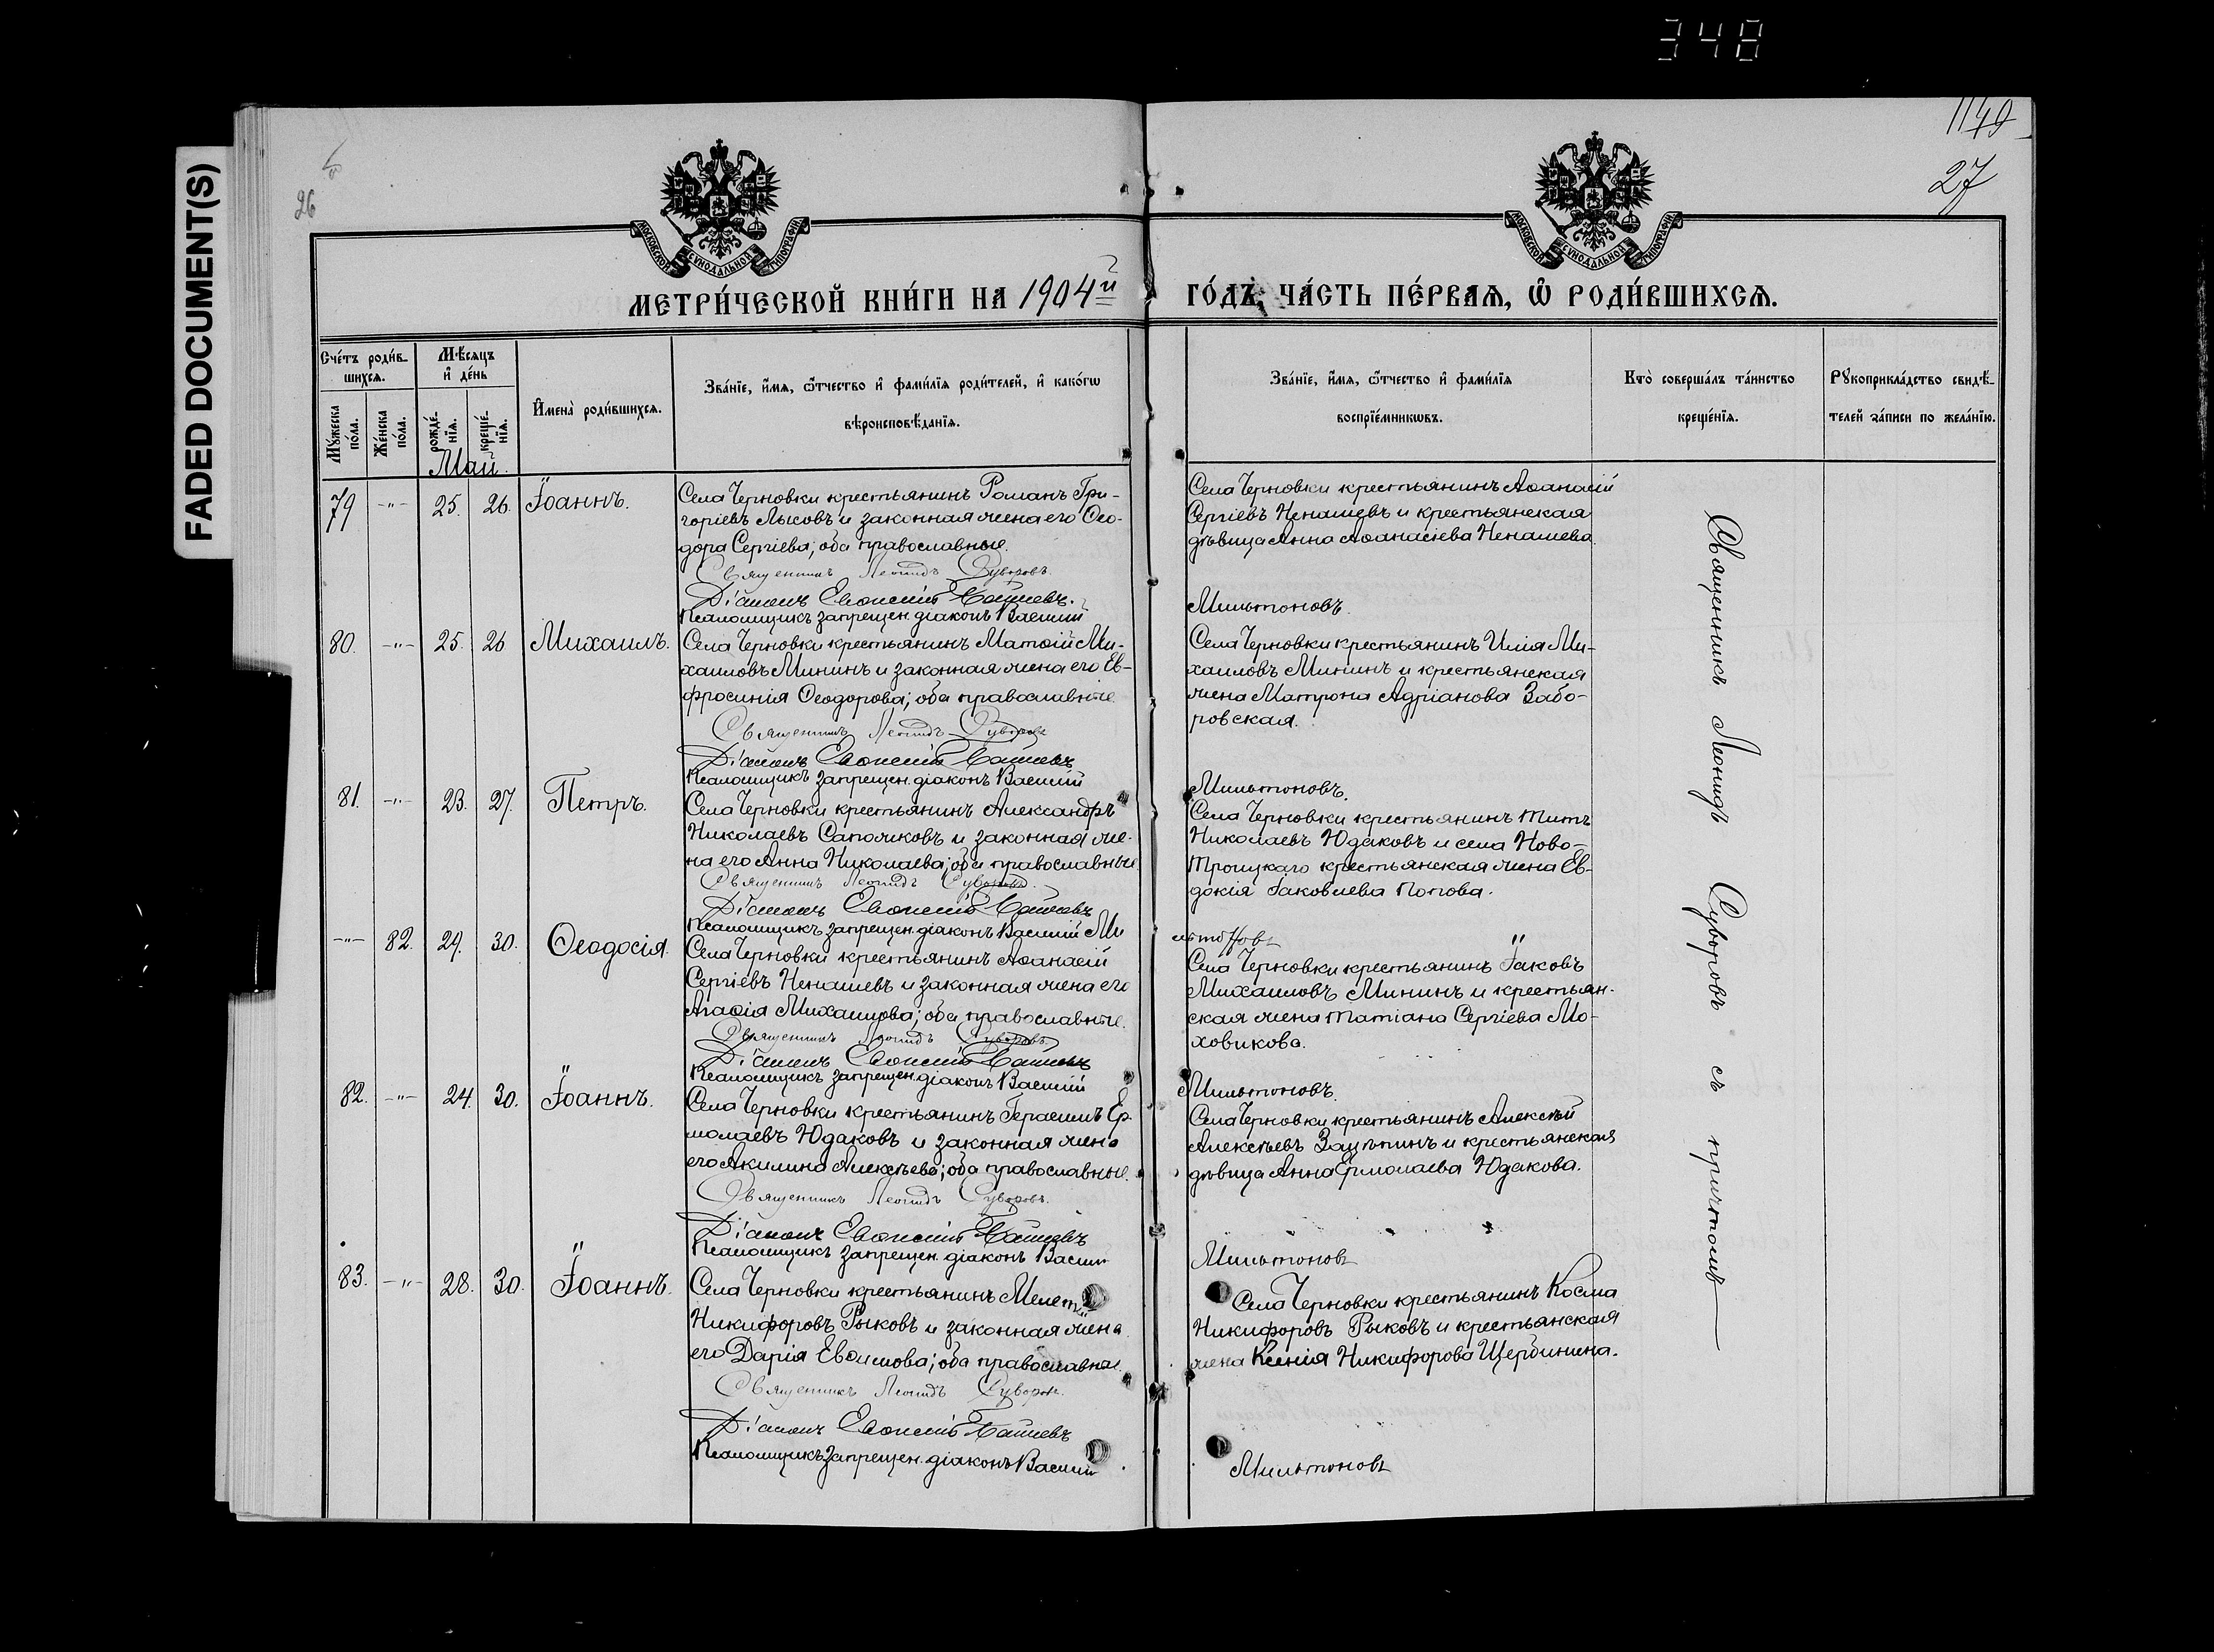 348
FADED DOCUMENT(S)
1149
26
27
МОСКОВСКОЙ СѴНОДАЛЬНОЙ ТИПОГРАФІИ
МОСКОВСКОЙ СѴНОДАЛЬНОЙ ТИПОГРАФІИ
МЕТРИ́ЧЕСКОЙ КНИ́ГИ НА 1904й ГО́ДЪ, ЧА́СТЬ ПЕ́РВАѦ, Ѽ РОДИ́ВШИХСѦ.
Сче́тъ роди́в-
шихсѧ.
Мѣ́сѧцъ
и҆ де́нь
Мꙋ́жеска
по́ла.
Же́нска
по́ла.
рожде́-
нїѧ.
креще́-
нїѧ.
И҆мена̀ роди́вшихсѧ.
Зва́нїе, и҆́мѧ, ѻ҆́тчество и҆ фами́лїѧ роди́телей, и҆ како́гѡ
вѣроисповѣ́данїѧ.
Зва́нїе, и҆́мѧ, ѻ҆́тчество и҆ фами́лїѧ
воспрїе́мникѡвъ.
Кто̀ соверша́лъ та́инство
креще́нїѧ.
Рꙋкоприкла́дство свидѣ́-
телей за́писи по жела́нїю.
Май.
79 -"- 25. 26. Іоаннъ.
Села Черновки крестьянинъ Романъ Гри-
горіевъ Лысовъ и законная жена его Ѳео-
дора Сергіева; оба православные.
Священникъ Леонидъ Суворовъ.
Діаконъ Евѳимій
Псаломщикъ запрещен. діаконъ Василій
Села Черновки крестьянинъ Аѳанасій
Сергіевъ Ненашевъ и крестьянская
дѣвица Анна Аѳанасіева Ненашева.
Мильтоновъ.
80. -"- 25. 26. Михаилъ.
Села Черновки крестьянинъ Матѳій Ми-
хаиловъ Мининъ и законная жена его Ев-
фросинія Ѳеодорова; оба православные.
Священникъ Леонидъ Суворовъ
Діаконъ Евѳимій
Псаломщикъ запрещен. діаконъ Василій
Села Черновки крестьянинъ Илія Ми-
хаиловъ Мининъ и крестьянская
жена Матрона Адріанова Забо-
ровская.
Мильтоновъ.
81. -"- 23. 27. Петръ.
Села Черновки крестьянинъ Александръ
Николаевъ Сапожковъ и законная же-
на его Анна Николаева; оба православные.
Священникъ Леонидъ Суворовъ.
Діаконъ Евѳимій
Псаломщикъ запрещен. діаконъ Василій Ми
Села Черновки крестьянинъ Титъ
Николаевъ Юдаковъ и села Ново-
Троицкаго крестьянская жена Ев-
докія Іаковлева Попова.
льтоновъ
-"- 82. 29. 30. Ѳеодосія.
Села Черновки крестьянинъ Аѳанасій
Сергіевъ Ненашевъ и законная жена его
Агаѳія Михаилова; оба православные.
Священникъ Леонидъ Суворовъ
Діаконъ Евѳимій
Псаломщикъ запрещен. діаконъ Василій
Села Черновки крестьянинъ Іаковъ
Михаиловъ Мининъ и крестьян-
ская жена Татіана Сергіева Мо-
ховикова.
Мильтоновъ.
82. -"- 24. 30. Іоаннъ.
Села Черновки крестьянинъ Герасимъ Ер
молаевъ Юдаковъ и законная жена
его Акилина Алексѣева; оба православные.
Священникъ Леонидъ Суворовъ.
Діаконъ Евѳимій
Псаломщикъ запрещен. діаконъ Васили
Села Черновки крестьянинъ Алексѣй
Алексѣевъ Зацѣпинъ и крестьянская
дѣвица Анна Ермолаева Юдакова.
Мильтоновъ
83. -"- 28. 30. Іоаннъ.
Села Черновки крестьянинъ Мелетій
Никифоровъ Рыковъ и законная жена
его Дарія Евѳимова; оба православные.
Священникъ Леонидъ Суворовъ.
Діаконъ Евѳимій
Псаломщикъ запрещен. діаконъ Василій
Села Черновки крестьянинъ Косма
Никифоровъ Рыковъ и крестьянская
жена Ксенія Никифорова Щербинина.
Мильтоновъ
Священникъ Леонидъ Суворовъ съ причтомъ